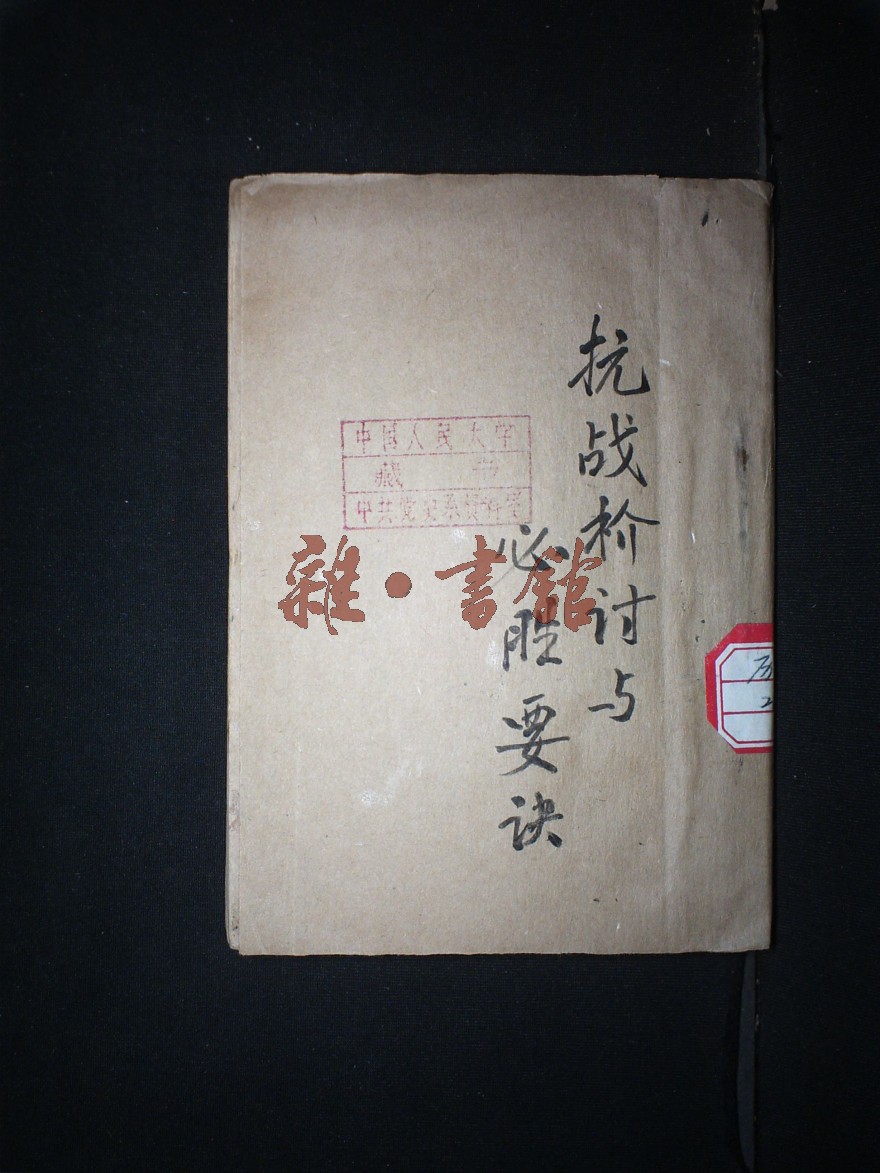 抗战检讨与
必胜要诀
中国人民大学
藏 书
中共党史系资料室
雜·書館
历
2